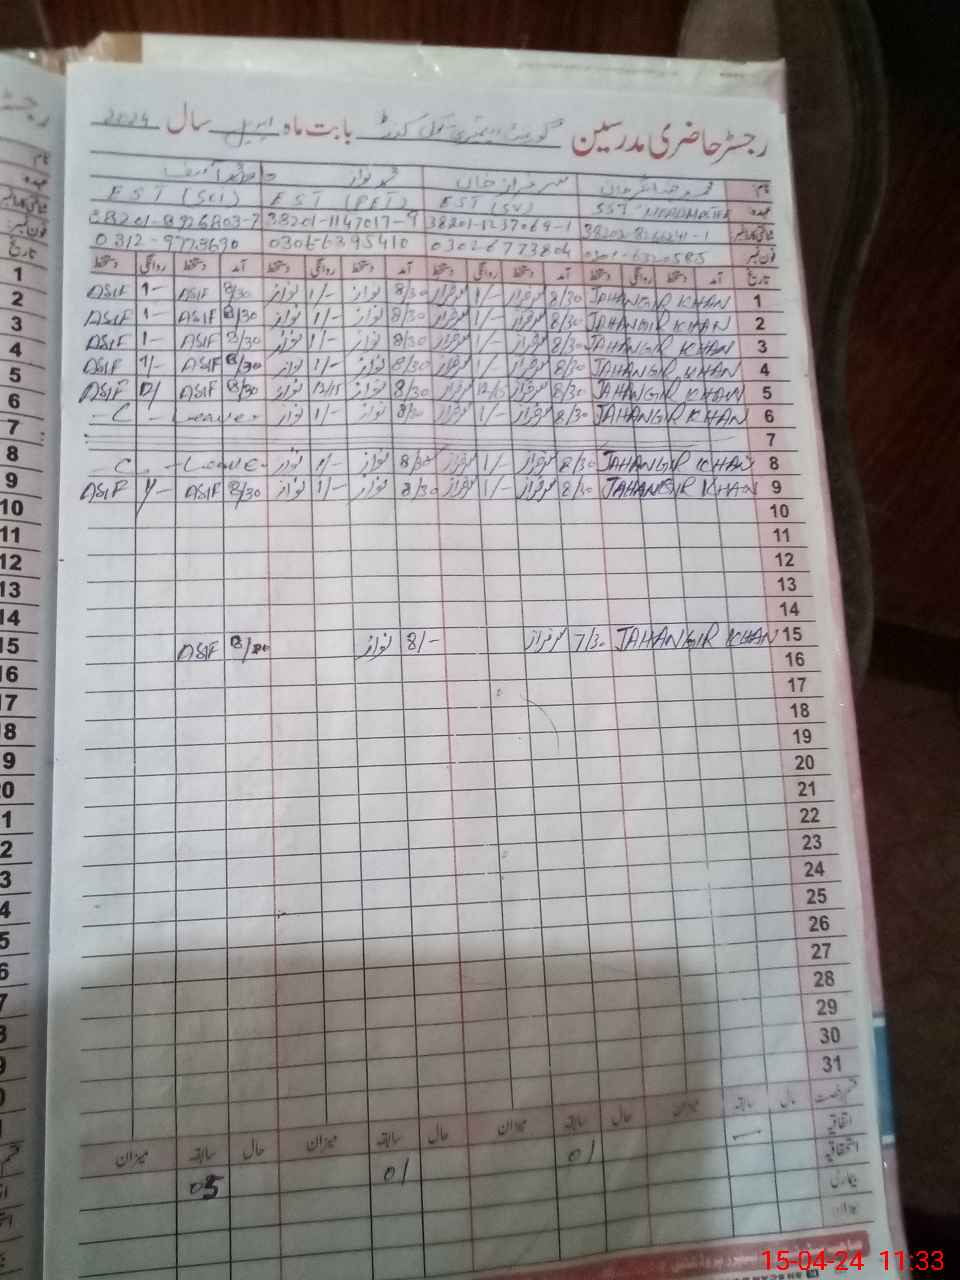 رجسٹر حاضری مدرسین گورنمنٹ بابت ماہ اپریل سال 2024
نام سرفراز خان محمد نواز
عہدہ SST EST (SV) EST (PET) EST (Sci)
38201-1237069-1 38201-1147017-9
فون نمبر 0301-6320585 0302-6773804 0306-6395410
تاریخ آمد دستخط روانگی دستخط آمد دستخط روانگی دستخط آمد دستخط روانگی دستخط آمد دستخط روانگی دستخط تاریخ
1 JAHANGIR KHAN 8/30 سرفراز 1/- سرفراز 8/30 نواز 1/- نواز 8/30 ASIF 1- ASIF 1
2 JAHANGIR KHAN 8/30 سرفراز 1/- سرفراز 8/30 نواز 1/- نواز 8/30 ASIF 1- ASIF 2
3 JAHANGIR KHAN 8/30 سرفراز 1/- سرفراز 8/30 نواز 1/- نواز 8/30 ASIF 1- ASIF 3
4 JAHANGIR KHAN 8/30 سرفراز 1/- سرفراز 8/30 نواز 1/- نواز 8/30 ASIF 1/- ASIF 4
5 JAHANGIR KHAN 8/30 سرفراز 12/15 سرفراز 8/30 نواز 12/15 نواز 8/30 ASIF 12/ ASIF 5
6 JAHANGIR KHAN 8/30 سرفراز 1/- سرفراز 8/30 نواز 1/- نواز Leave - C - 6
7 7
8 JAHANGIR KHAN 8/30 سرفراز 1/- سرفراز 8/30 نواز 1/- نواز Leave - C - 8
9 JAHANGIR KHAN 8/30 سرفراز 1/- سرفراز 8/30 نواز 1/- نواز 8/30 ASIF 1/- ASIF 9
10 10
11 11
12 12
13 13
14 14
15 JAHANGIR KHAN 7/30 سرفراز 8/- نواز ASIF 15
16 16
17 17
18 18
19 9
20 20
21 1
22 2
23 3
24 4
25 5
26 6
27 7
28 8
29 9
30 0
31
قسم رخصت حال سابقہ میزان حال سابقہ میزان حال سابقہ میزان حال سابقہ میزان
اتفاقیہ
استحقاقیہ 01 01 05
بیماری
میزان
15-04-24 11:33